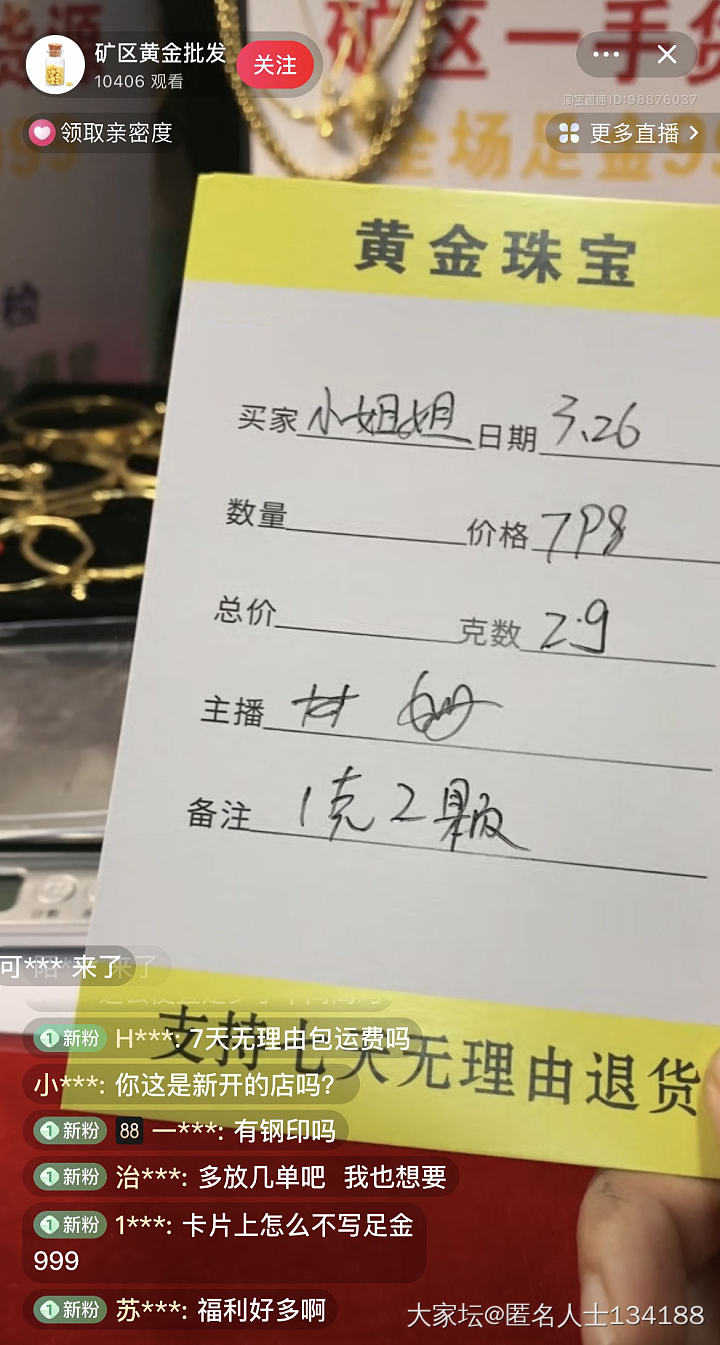 矿区黄金批发
10406 观看
关注
淘宝直播ID:98876037
领取亲密度
更多直播
矿区一手货
全场足金99
黄金珠宝
买家 小姐姐 日期 3.26
数量 价格 798
总价 克数 2.9
主播
备注 1克2颗
支持七天无理由退货
可*** 来了
新粉 H***: 7天无理由包运费吗
小***: 你这是新开的店吗?
新粉 88 一***: 有钢印吗
新粉 治***: 多放几单吧 我也想要
新粉 1***: 卡片上怎么不写足金
999
新粉 苏***: 福利好多啊
大家坛@匿名人士134188